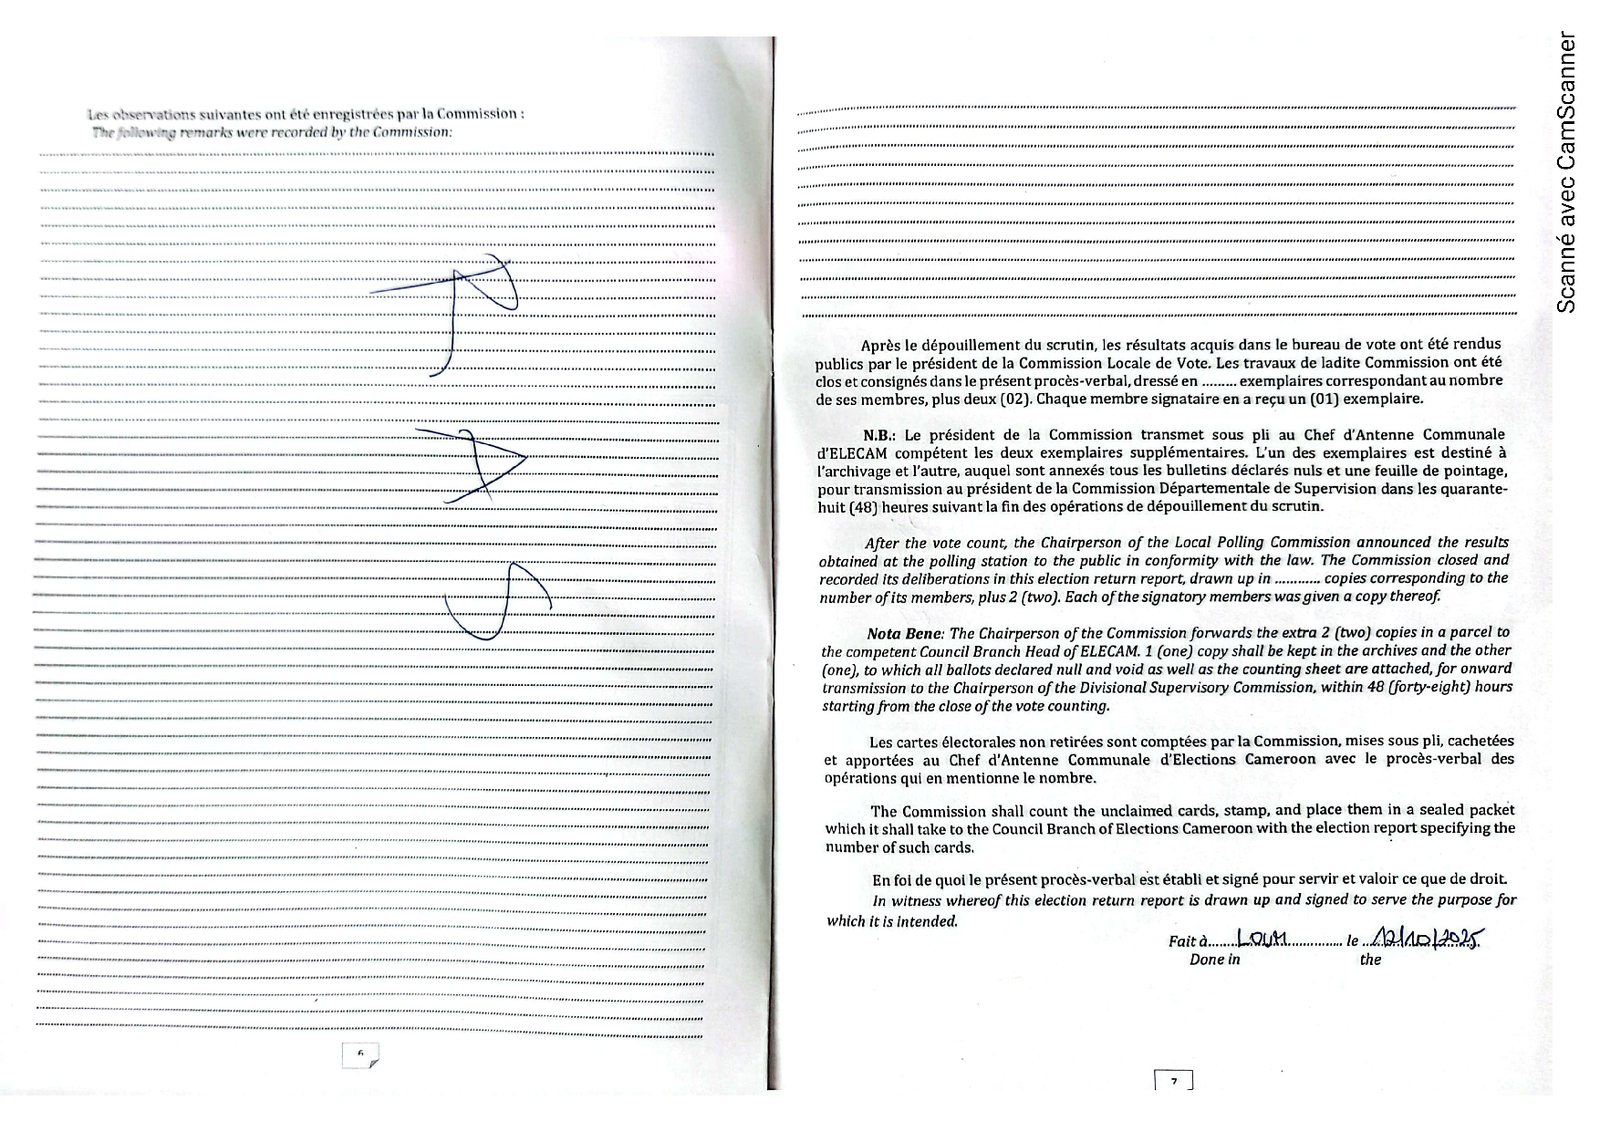 Les observations suivantes ont été enregistrées par la Commission :
The following remarks were recorded by the Commission:
6
Après le dépouillement du scrutin, les résultats acquis dans le bureau de vote ont été rendus
publics par le président de la Commission Locale de Vote. Les travaux de ladite Commission ont été
clos et consignés dans le présent procès-verbal, dressé en ......... exemplaires correspondant au nombre
de ses membres, plus deux (02). Chaque membre signataire en a reçu un (01) exemplaire.
N.B.: Le président de la Commission transmet sous pli au Chef d'Antenne Communale
d'ELECAM compétent les deux exemplaires supplémentaires. L'un des exemplaires est destiné à
l'archivage et l'autre, auquel sont annexés tous les bulletins déclarés nuls et une feuille de pointage,
pour transmission au président de la Commission Départementale de Supervision dans les quarante-
huit (48) heures suivant la fin des opérations de dépouillement du scrutin.
After the vote count, the Chairperson of the Local Polling Commission announced the results
obtained at the polling station to the public in conformity with the law. The Commission closed and
recorded its deliberations in this election return report, drawn up in ........... copies corresponding to the
number of its members, plus 2 (two). Each of the signatory members was given a copy thereof.
Nota Bene: The Chairperson of the Commission forwards the extra 2 (two) copies in a parcel to
the competent Council Branch Head of ELECAM. 1 (one) copy shall be kept in the archives and the other
(one), to which all ballots declared null and void as well as the counting sheet are attached, for onward
transmission to the Chairperson of the Divisional Supervisory Commission, within 48 (forty-eight) hours
starting from the close of the vote counting.
Les cartes électorales non retirées sont comptées par la Commission, mises sous pli, cachetées
et apportées au Chef d'Antenne Communale d'Elections Cameroon avec le procès-verbal des
opérations qui en mentionne le nombre.
The Commission shall count the unclaimed cards, stamp, and place them in a sealed packet
which it shall take to the Council Branch of Elections Cameroon with the election report specifying the
number of such cards.
En foi de quoi le présent procès-verbal est établi et signé pour servir et valoir ce que de droit.
In witness whereof this election return report is drawn up and signed to serve the purpose for
which it is intended.
Fait à.......LOUM............. le ..12/10/2025.
Done in the
7
Scanné avec CamScanner